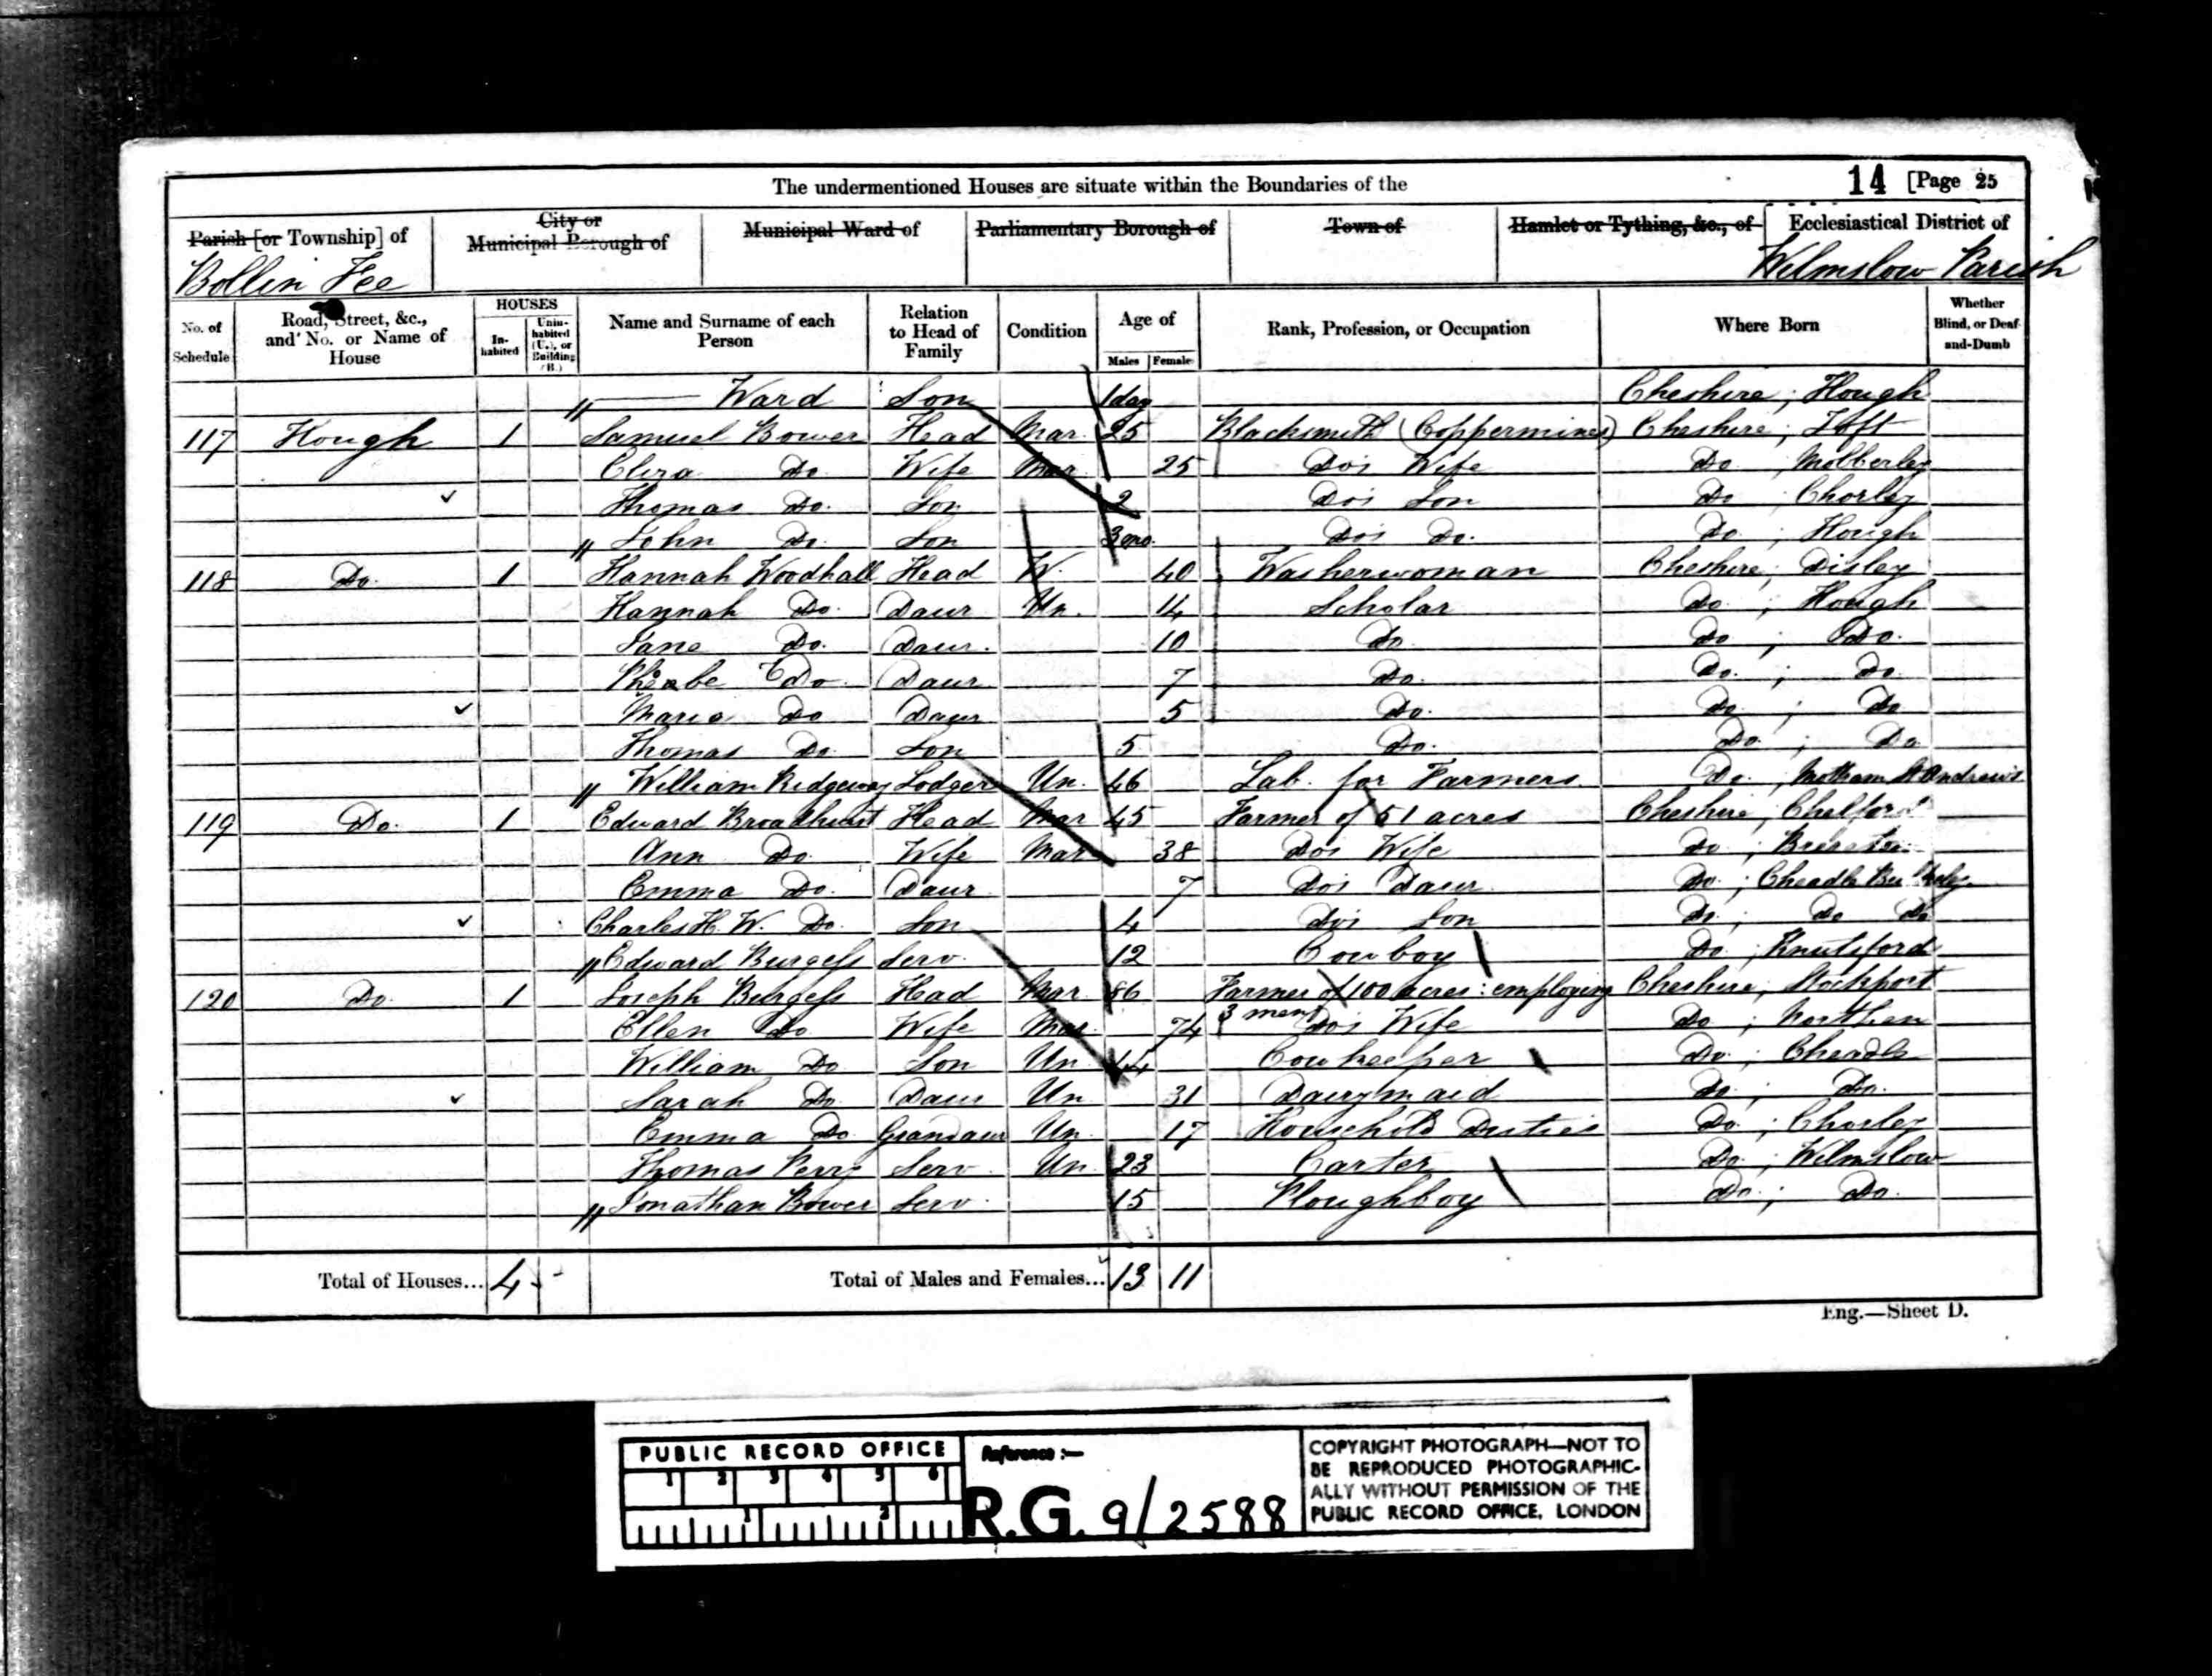 The undermentioned Houses are situate within the Boundaries of the 14 [Page 25
Parish [or Township] of City or Municipal Borough of Municipal Ward of Parliamentary Borough of Town of Hamlet or Tything, &c., of Ecclesiastical District of
Bollin Fee Wilmslow Parish
No. of Schedule Road, Street, &c., and No. or Name of House HOUSES In-habited Unin-habited (U.), or Building (B.) Name and Surname of each Person Relation to Head of Family Condition Age of Males Females Rank, Profession, or Occupation Where Born Whether Blind, or Deaf-and-Dumb
" —— Ward Son 1 day Cheshire; Hough
117 Hough 1 Samuel Bower Head Mar. 25 Blacksmith (Coppermines) Cheshire; Toft
Eliza Do. Wife Mar. 25 Do's Wife Do ; Mobberley
Thomas Do. Son 2 Do's Son Do ; Chorley
" John Do. Son 3 mo. Do's Do. Do ; Hough
118 Do. 1 Hannah Woodhall Head W. 40 Washerwoman Cheshire; Disley
Hannah Do. Daur Un. 14 Scholar Do ; Hough
Jane Do. Daur. 10 Do Do ; Do.
Phoebe Do. Daur 7 Do. Do. ; Do.
Maria Do Daur 5 Do. Do ; Do
Thomas Do. Son 5 Do. Do ; Do
" William Ridgeway Lodger Un. 46 Lab. for Farmers Do. ; Mottram St Andrews
119 Do. 1 Edward Broadhurst Head Mar 45 Farmer of 51 acres Cheshire; Chelford
Ann Do. Wife Mar 38 Do's Wife Do ;
Emma Do. Daur 7 Do's Daur Do ; Cheadle Bulkeley
Charles H. W. Do. Son 4 Do's Son Do ; Do Do
" Edward Burgess Serv. 12 Cowboy Do ; Knutsford
120 Do 1 Joseph Burgess Head Mar. 86 Farmer of 100 acres: employing Cheshire; Stockport
Ellen Do Wife Mar. 74 3 men Do's Wife Do ; Northen
William Do Son Un 44 Cowkeeper Do ; Cheadle
Sarah Do Daur Un 31 Dairymaid Do ; Do.
Emma Do Grandaur Un. 17 Household Duties Do ; Chorley
Thomas Perry Serv Un 23 Carter Do ; Wilmslow
" Jonathan Bower Serv. 15 Ploughboy Do. ; Do.
Total of Houses... 4 - Total of Males and Females... 13 11
Eng.—Sheet D.
PUBLIC RECORD OFFICE
1 2 3 4 5 6
1 2
Reference :—
R.G. 9/2588
COPYRIGHT PHOTOGRAPH—NOT TO
BE REPRODUCED PHOTOGRAPHIC-
ALLY WITHOUT PERMISSION OF THE
PUBLIC RECORD OFFICE, LONDON